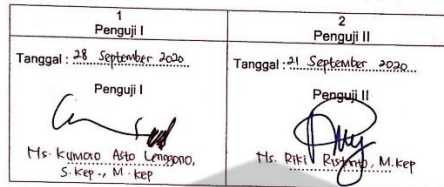 1
Penguji I
Tanggal : 28 September 2020
Penguji I
Ns. Kumoro Asto Lenggono,
S. Kep., M. Kep
2
Penguji II
Tanggal : 21 September 2020
Penguji II
Ns. Riki Ristanto, M. Kep